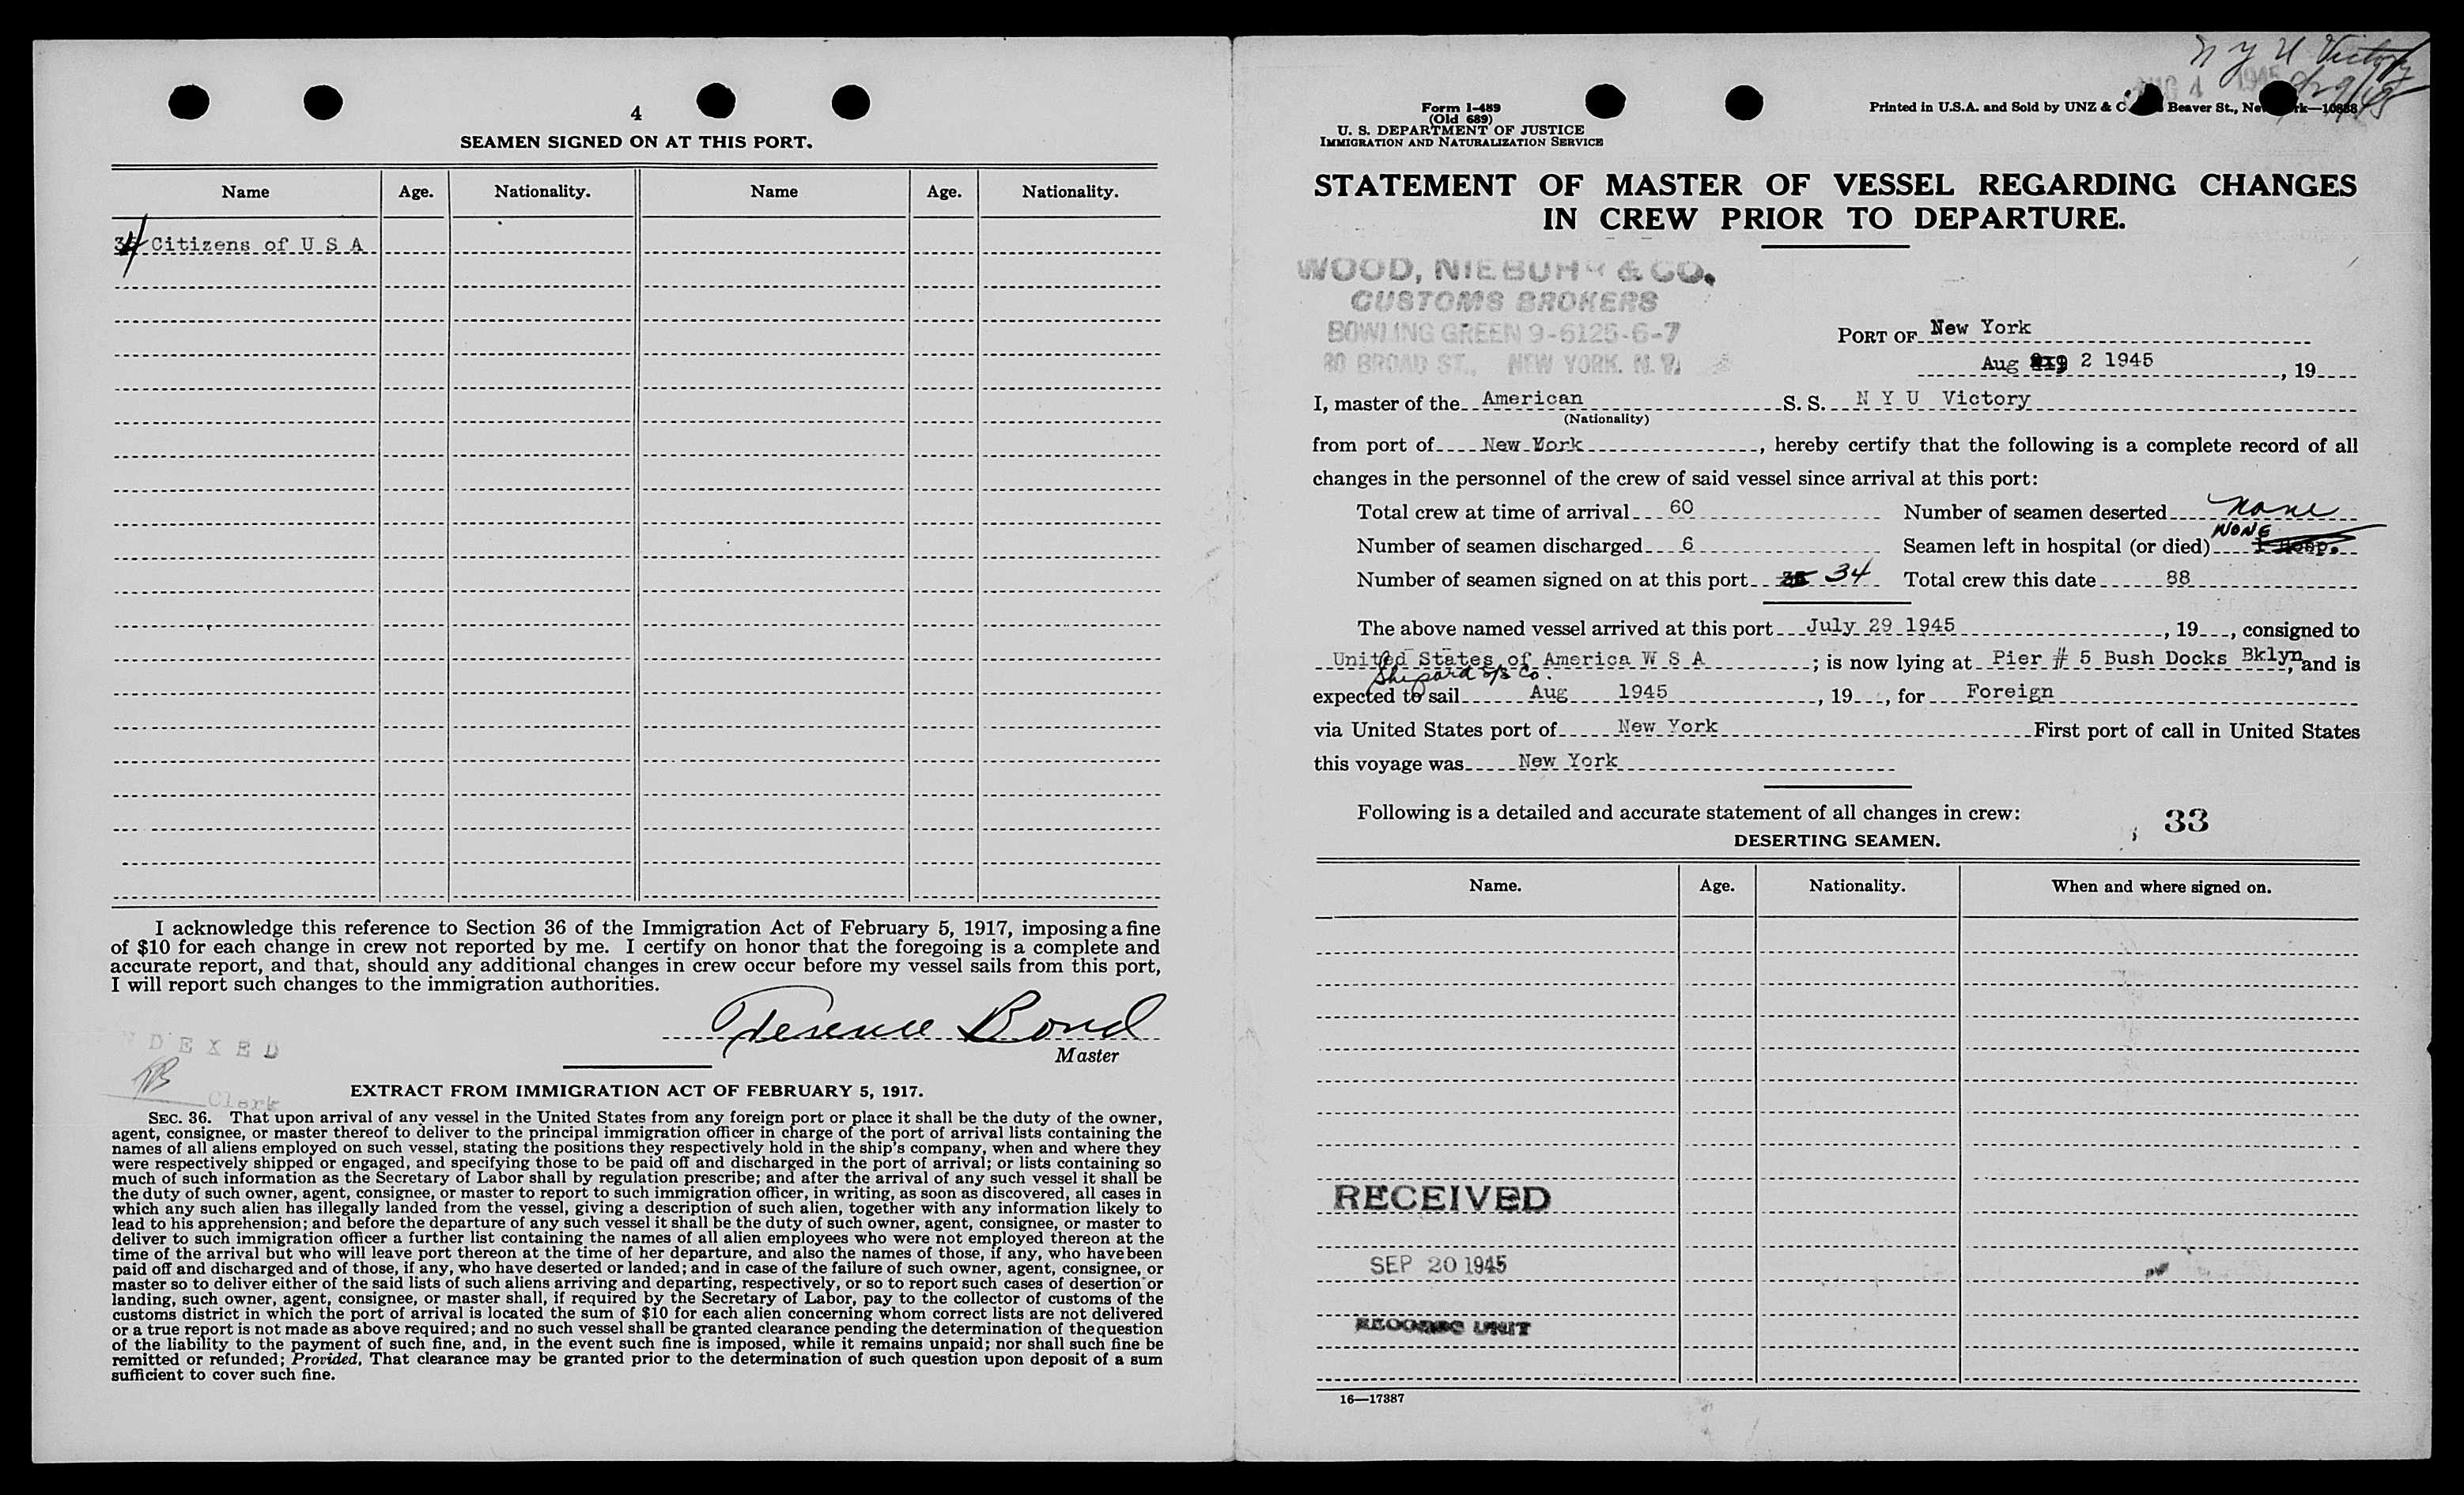 4
SEAMEN SIGNED ON AT THIS PORT.
Name Age. Nationality. Name Age. Nationality.
34 Citizens of U S A
I acknowledge this reference to Section 36 of the Immigration Act of February 5, 1917, imposing a fine
of $10 for each change in crew not reported by me. I certify on honor that the foregoing is a complete and
accurate report, and that, should any additional changes in crew occur before my vessel sails from this port,
I will report such changes to the immigration authorities.
Terence Bond
Master
NDEXED
Clerk
EXTRACT FROM IMMIGRATION ACT OF FEBRUARY 5, 1917.
SEC. 36. That upon arrival of any vessel in the United States from any foreign port or place it shall be the duty of the owner,
agent, consignee, or master thereof to deliver to the principal immigration officer in charge of the port of arrival lists containing the
names of all aliens employed on such vessel, stating the positions they respectively hold in the ship's company, when and where they
were respectively shipped or engaged, and specifying those to be paid off and discharged in the port of arrival; or lists containing so
much of such information as the Secretary of Labor shall by regulation prescribe; and after the arrival of any such vessel it shall be
the duty of such owner, agent, consignee, or master to report to such immigration officer, in writing, as soon as discovered, all cases in
which any such alien has illegally landed from the vessel, giving a description of such alien, together with any information likely to
lead to his apprehension; and before the departure of any such vessel it shall be the duty of such owner, agent, consignee, or master to
deliver to such immigration officer a further list containing the names of all alien employees who were not employed thereon at the
time of the arrival but who will leave port thereon at the time of her departure, and also the names of those, if any, who have been
paid off and discharged and of those, if any, who have deserted or landed; and in case of the failure of such owner, agent, consignee, or
master so to deliver either of the said lists of such aliens arriving and departing, respectively, or so to report such cases of desertion or
landing, such owner, agent, consignee, or master shall, if required by the Secretary of Labor, pay to the collector of customs of the
customs district in which the port of arrival is located the sum of $10 for each alien concerning whom correct lists are not delivered
or a true report is not made as above required; and no such vessel shall be granted clearance pending the determination of the question
of the liability to the payment of such fine, and, in the event such fine is imposed, while it remains unpaid; nor shall such fine be
remitted or refunded; Provided, That clearance may be granted prior to the determination of such question upon deposit of a sum
sufficient to cover such fine.
N Y U Victory
AUG 4 1945
Form I-489
(Old 689)
U. S. DEPARTMENT OF JUSTICE
IMMIGRATION AND NATURALIZATION SERVICE
Printed in U.S.A. and Sold by UNZ & C Beaver St., Ne rk—10888
STATEMENT OF MASTER OF VESSEL REGARDING CHANGES
IN CREW PRIOR TO DEPARTURE.
WOOD, NIEBUHR & CO.
CUSTOMS BROKERS
BOWLING GREEN 9-6125-6-7
80 BROAD ST., NEW YORK, N. Y.
PORT OF New York
Aug 2 1945, 19
I, master of the American S. S. N Y U Victory
(Nationality)
from port of New York, hereby certify that the following is a complete record of all
changes in the personnel of the crew of said vessel since arrival at this port:
Total crew at time of arrival 60 Number of seamen deserted none
Number of seamen discharged 6 Seamen left in hospital (or died) NONE 1 Hosp.
Number of seamen signed on at this port 34 Total crew this date 88
The above named vessel arrived at this port July 29 1945, 19, consigned to
United States of America W S A; is now lying at Pier # 5 Bush Docks Bklyn, and is
Shepard S/S Co.
expected to sail Aug 1945, 19, for Foreign
via United States port of New York First port of call in United States
this voyage was New York
Following is a detailed and accurate statement of all changes in crew: 33
DESERTING SEAMEN.
Name. Age. Nationality. When and where signed on.
RECEIVED
SEP 20 1945
RECORDS UNIT
16—17387